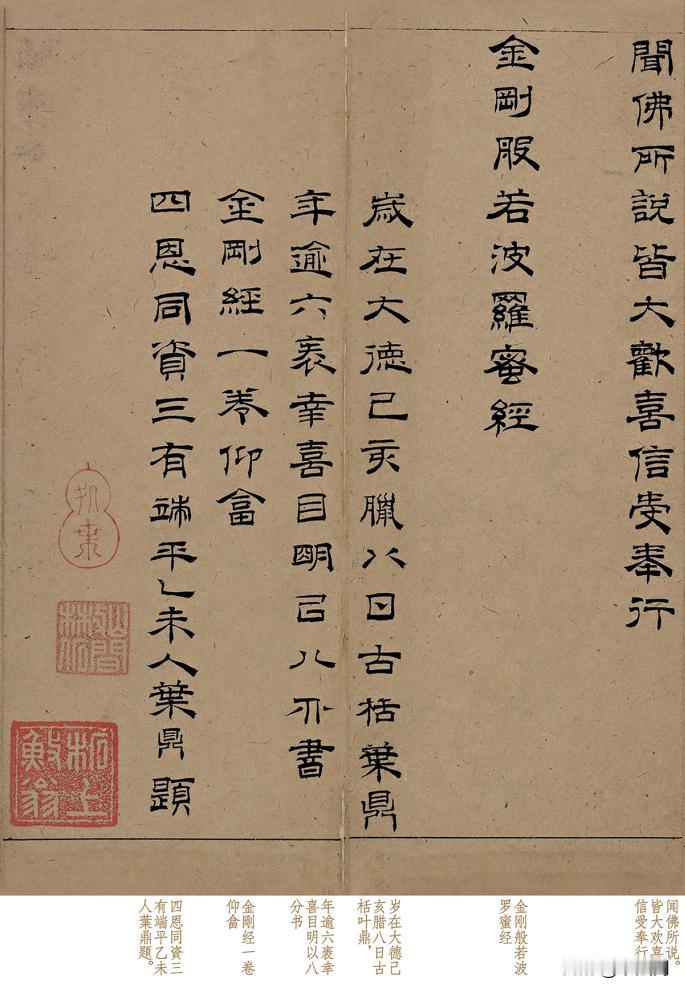 聞佛所說皆大歡喜信受奉行
金剛般若波羅蜜經
歲在大德己亥臘八日古栝葉鼎
年逾六袠幸喜目明㠯八分書
金剛經一卷仰畣
四恩同資三有端平乙未人葉鼎題
闻佛所说。
皆大欢喜
信受奉行
金刚般若波
罗蜜经
岁在大德己
亥腊八日古
栝叶鼎,
年逾六袠幸
喜目明以八
分书
金剛經一卷
仰畣
四恩同資三
有端平乙未
人葉鼎題。